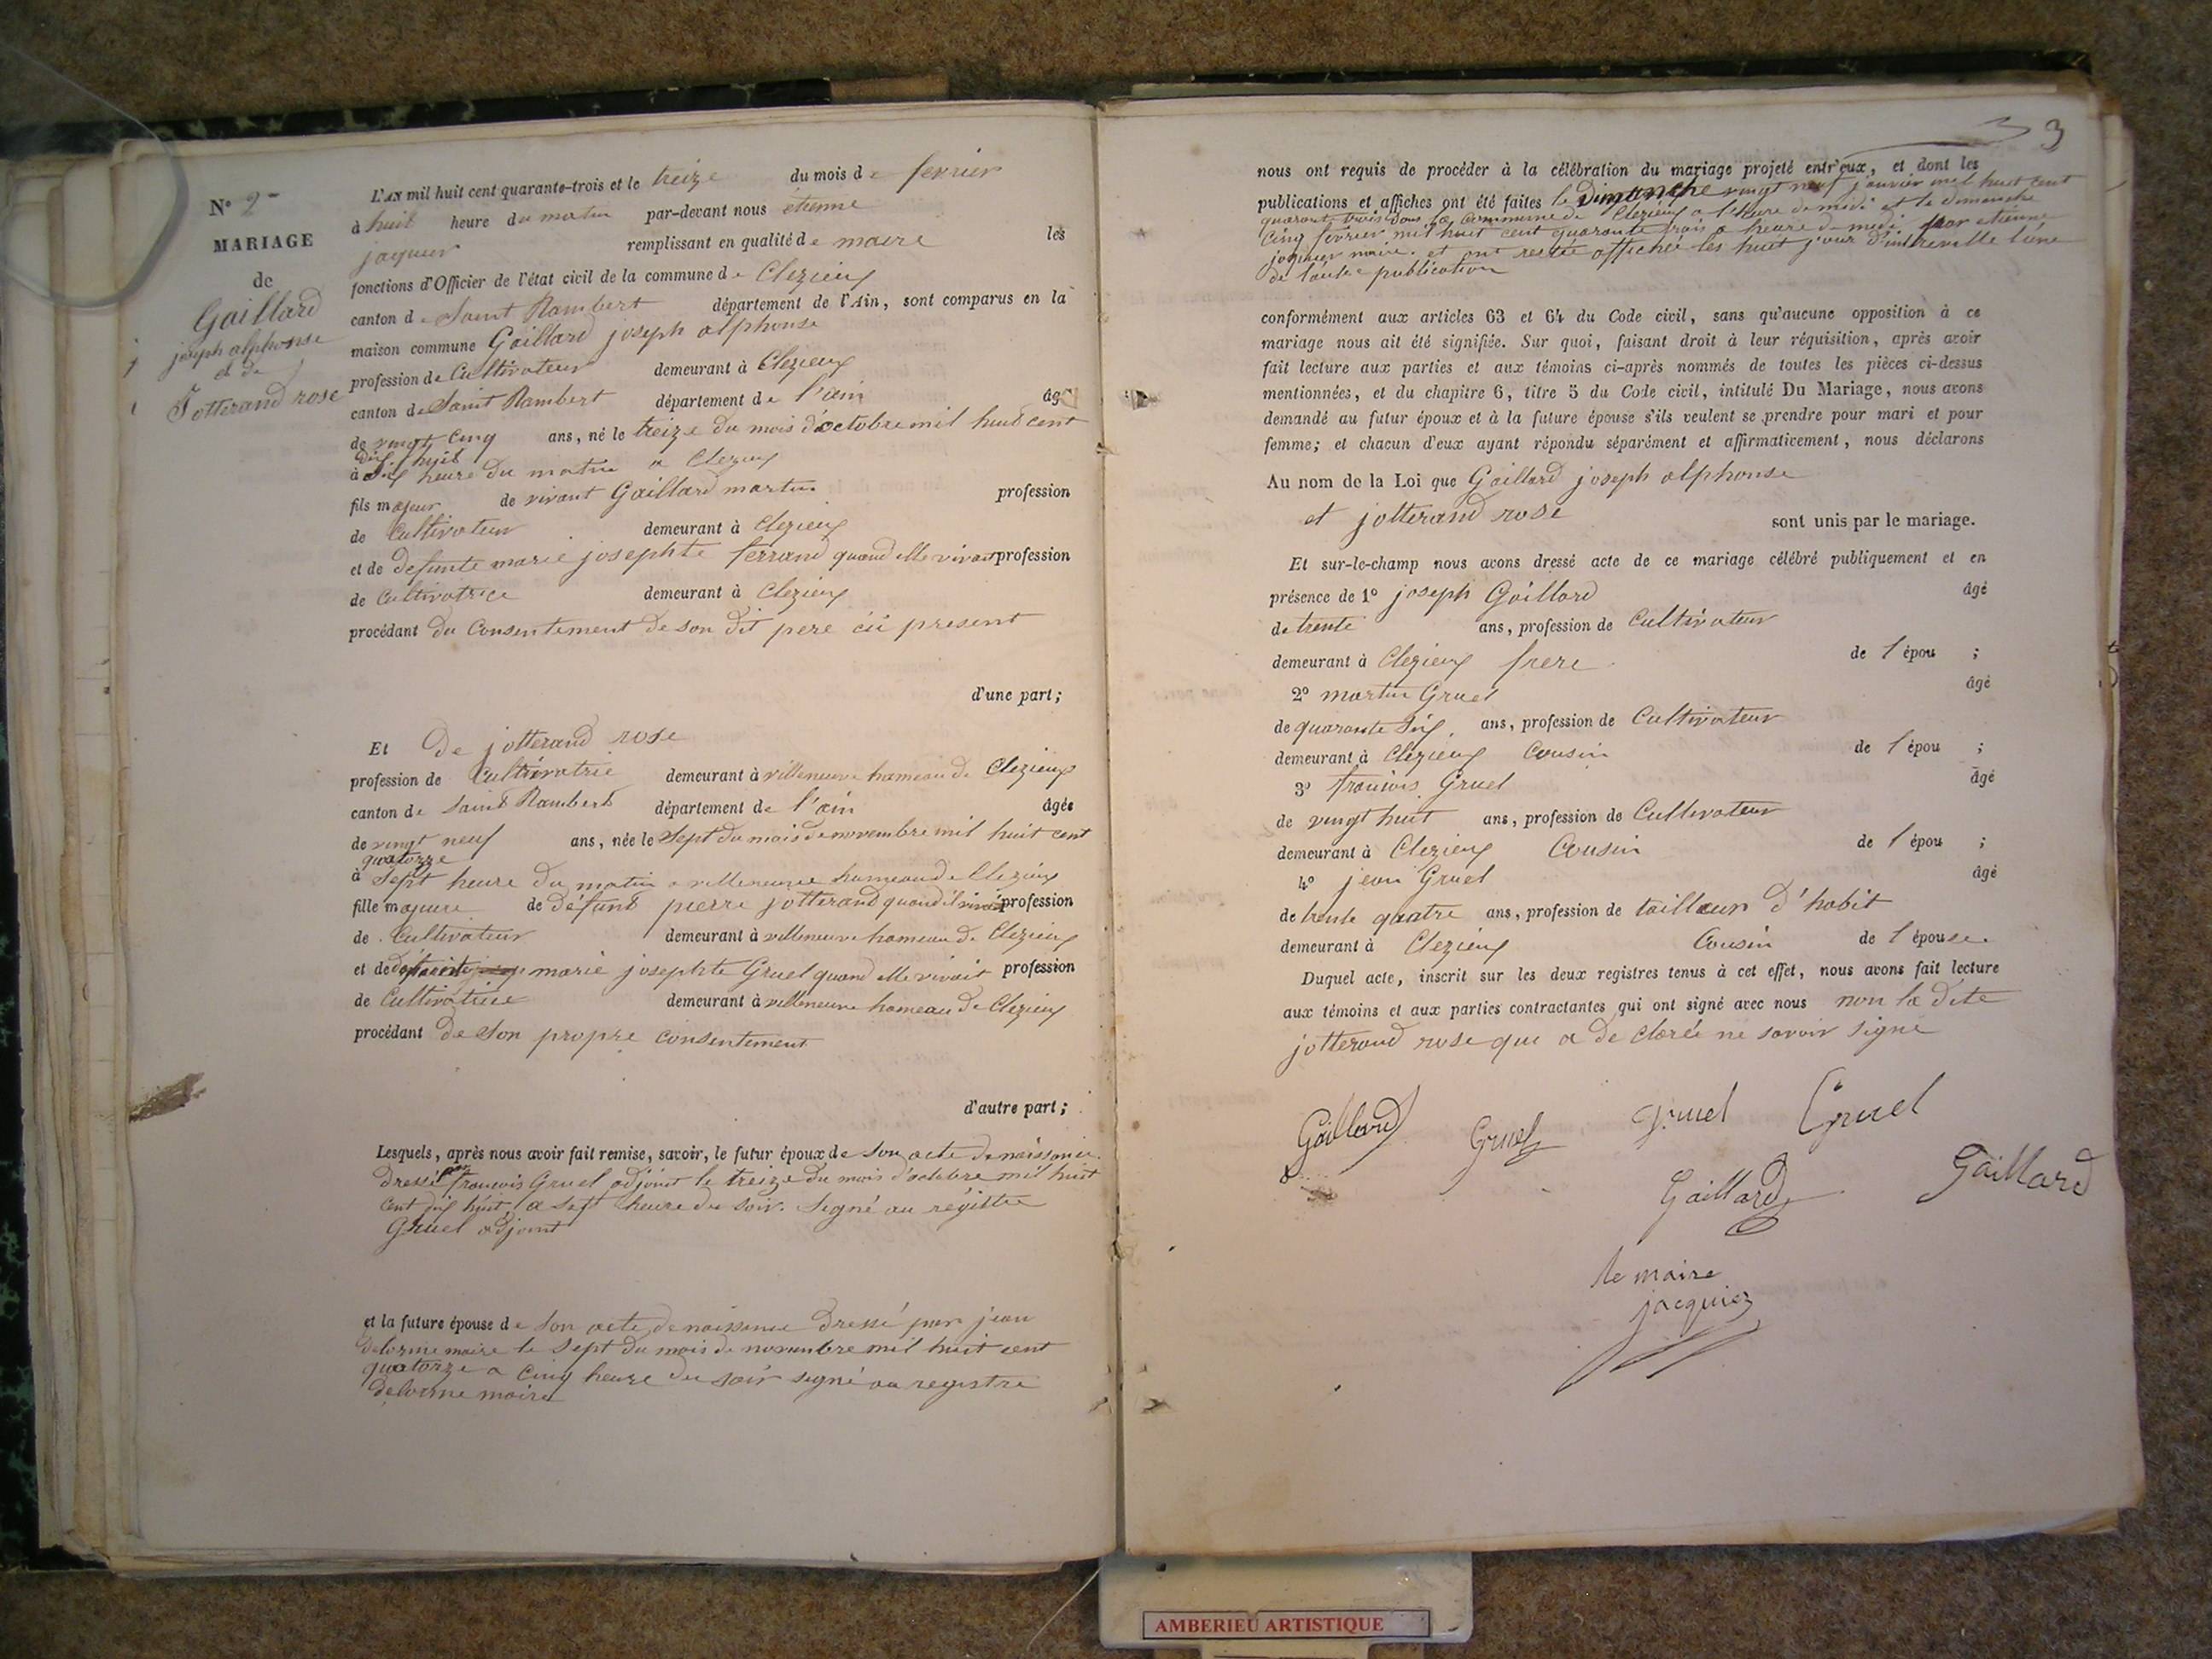 N° 2
MARIAGE
de
Gaillard
joseph alphonse
et de
Jotterand rose
L'AN mil huit cent quarante-trois et le treize du mois de fevrier
à huit heure du matin par-devant nous étienne
jaquier remplissant en qualité de maire les
fonctions d'Officier de l'état civil de la commune de Clezieux
canton de Saint Rambert département de l'Ain, sont comparus en la
maison commune Gaillard joseph alphonse
profession de Cultivateur demeurant à Clezieux
canton de Saint Rambert département de l'ain âgé
de vingt cinq ans, né le treize du mois d'octobre mil huit cent
dix huit
à dix heure du matin a Clezieux
fils majeur de vivant Gaillard martin profession
de Cultivateur demeurant à Clezieux
et de defunte marie josephte ferrand quand elle vivait profession
de Cultivatrice demeurant à Clezieux
procédant du Consentement de son dit pere ici present
d'une part;
Et de jotterand rose
profession de Cultivatrie demeurant à villeneuve hameau de Clezieux
canton de Saint Rambert département de l'ain âgée
de vingt neuf ans, née le Sept du mois de novembre mil huit cent
quatorze
à Sept heure du matin a villeneuve hameau de Clezieux
fille majeure de défunt pierre jotterand quand il vivait profession
de Cultivateur demeurant à villeneuve hameau de Clezieux
et de marie josephte Gruel quand elle vivait profession
de Cultivatrice demeurant à villeneuve hameau de Clezieux
procédant de son propre consentement
d'autre part;
Lesquels, après nous avoir fait remise, savoir, le futur époux de son acte de naissance
dressé par francois Gruel adjoint le treize du mois d'octobre mil huit
cent dix huit a sept heure du soir. Signé au régistre
Gruel adjoint
et la future épouse de son acte de naissance dressé par jean
delorme maire le sept du mois de novembre mil huit cent
quatorze a cinq heure du soir signé au registre
delorme maire
3
nous ont requis de procéder à la célébration du mariage projeté entr'eux, et dont les
publications et affiches ont été faites le Dimanche vingt neuf janvier mil huit cent
quarante trois dans la Commune de Clezieux a l'heure de midi et le dimanche
cinq février mil huit cent quarante trois a heure de midi par etienne
jaquier maire. et ont restée affichée les huit jour d'intrevalle l'une
de l'autre publication
conformément aux articles 63 et 64 du Code civil, sans qu'aucune opposition à ce
mariage nous ait été signifiée. Sur quoi, faisant droit à leur réquisition, après avoir
fait lecture aux parties et aux témoins ci-après nommés de toutes les pièces ci-dessus
mentionnées, et du chapitre 6, titre 5 du Code civil, intitulé Du Mariage, nous avons
demandé au futur époux et à la future épouse s'ils veulent se prendre pour mari et pour
femme; et chacun d'eux ayant répondu séparément et affirmativement, nous déclarons
Au nom de la Loi que Gaillard joseph alphonse
et jotterand rose sont unis par le mariage.
Et sur-le-champ nous avons dressé acte de ce mariage célébré publiquement et en
présence de 1° joseph Gaillard âgé
de trente ans, profession de Cultivateur
demeurant à Clezieux frere de l'épou ;
2° martin Gruel âgé
de quarante six ans, profession de Cultivateur
demeurant à Clezieux Cousin de l'épou ;
3° francois Gruel âgé
de vingt huit ans, profession de Cultivateur
demeurant à Clezieux Cousin de l'épou ;
4° jean Gruel âgé
de trente quatre ans, profession de tailleur d'habit
demeurant à Clezieux Cousin de l'épouse.
Duquel acte, inscrit sur les deux registres tenus à cet effet, nous avons fait lecture
aux témoins et aux parties contractantes qui ont signé avec nous non la dite
jotterand rose que a de clarée ne savoir signé
Gaillard Gruel Gruel Gruel
Gaillard Gaillard
le maire
jacquier
AMBERIEU ARTISTIQUE